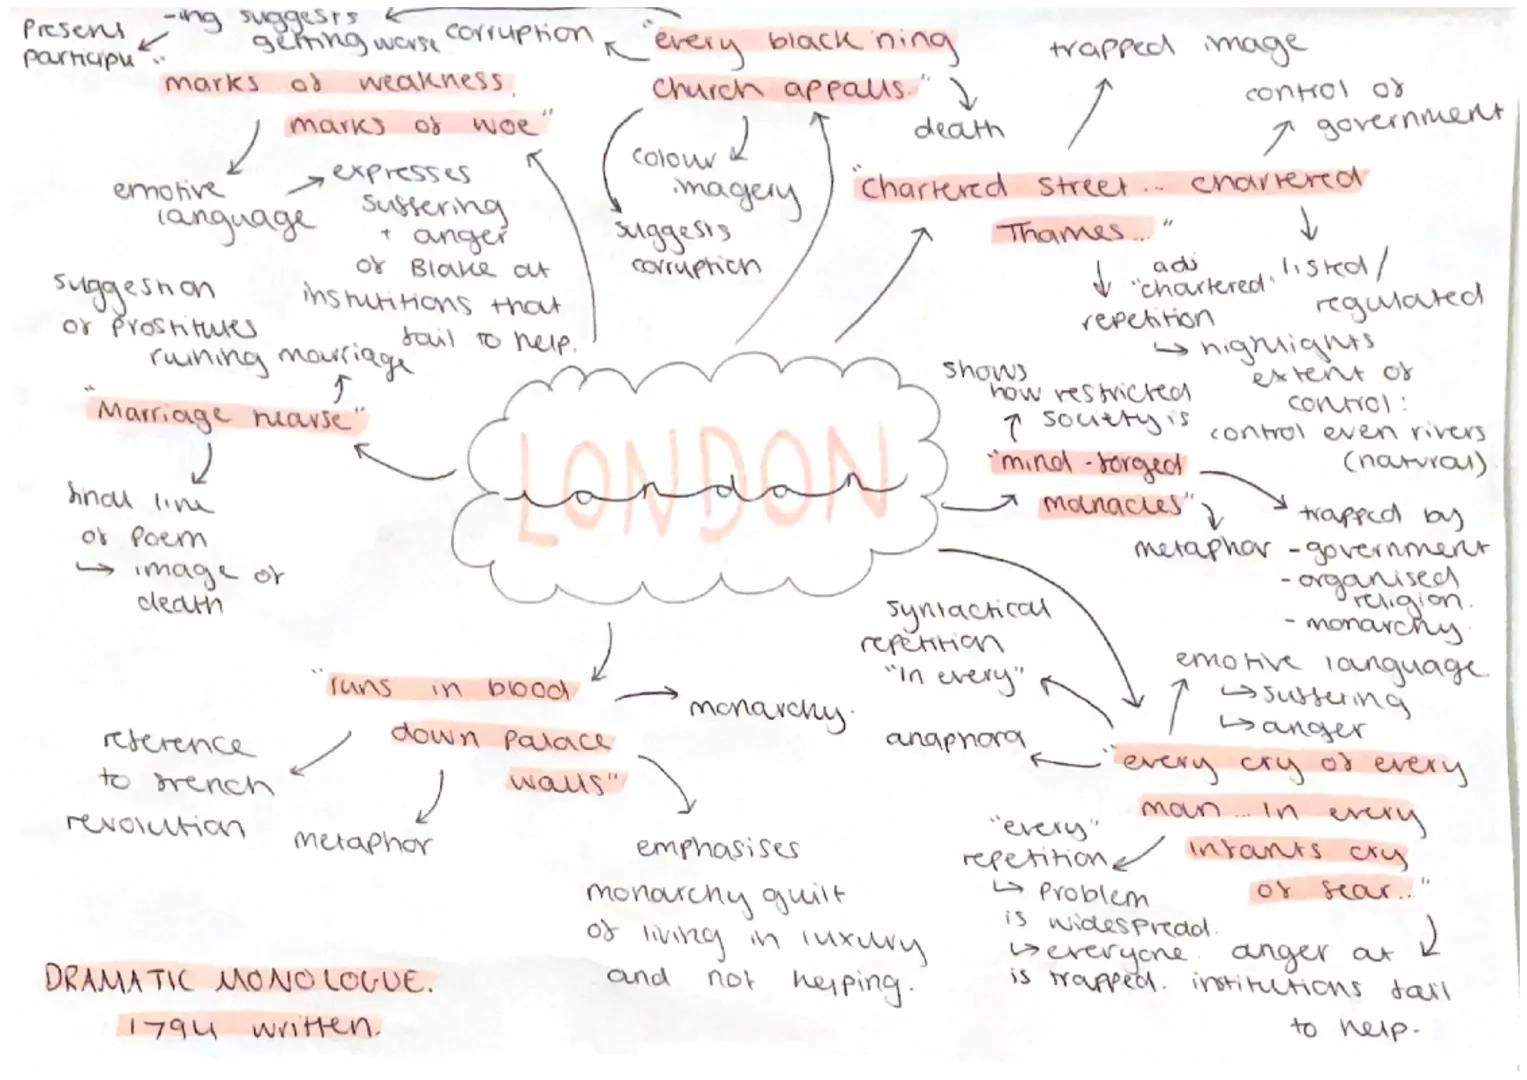 Present
particip
-ing suggests
getting worse
corruption
"every black'ning
church appalls."
death
colour
imagery
suggests
corruption
trapped image
control of
government
"chartered street... chartered
Thames..."
adj
"chartered"
repetition
↳ highlights
extent of
control:
control even rivers
(natural)
listed/
regulated
marks of weakness,
marks of woe"
emotive
language
expresses
suffering
+ anger
of Blake at
institutions that
fail to help.
suggestion
of prostitutes
ruining marriage
"Marriage hearse"
final line
of poem
↳ image of
death
LONDON
London
shows
how restricted
society is
"mind-forged
manacles"
metaphor
trapped by
- government
- organised
religion.
- monarchy.
syntactical
repetition
"In every"
anaphora
emotive language
↳ suffering
↳ anger
"every cry of every
man... in every
infants cry
of fear..."
"every"
repetition
↳ problem
is widespread.
↳ everyone
is trapped.
anger at
institutions fail
to help.
"runs in blood
down palace
walls"
monarchy.
reference
to french
revolution
metaphor
emphasises
monarchy guilt
of living in luxury
and not helping.
DRAMATIC MONOLOGUE.
1794 written.